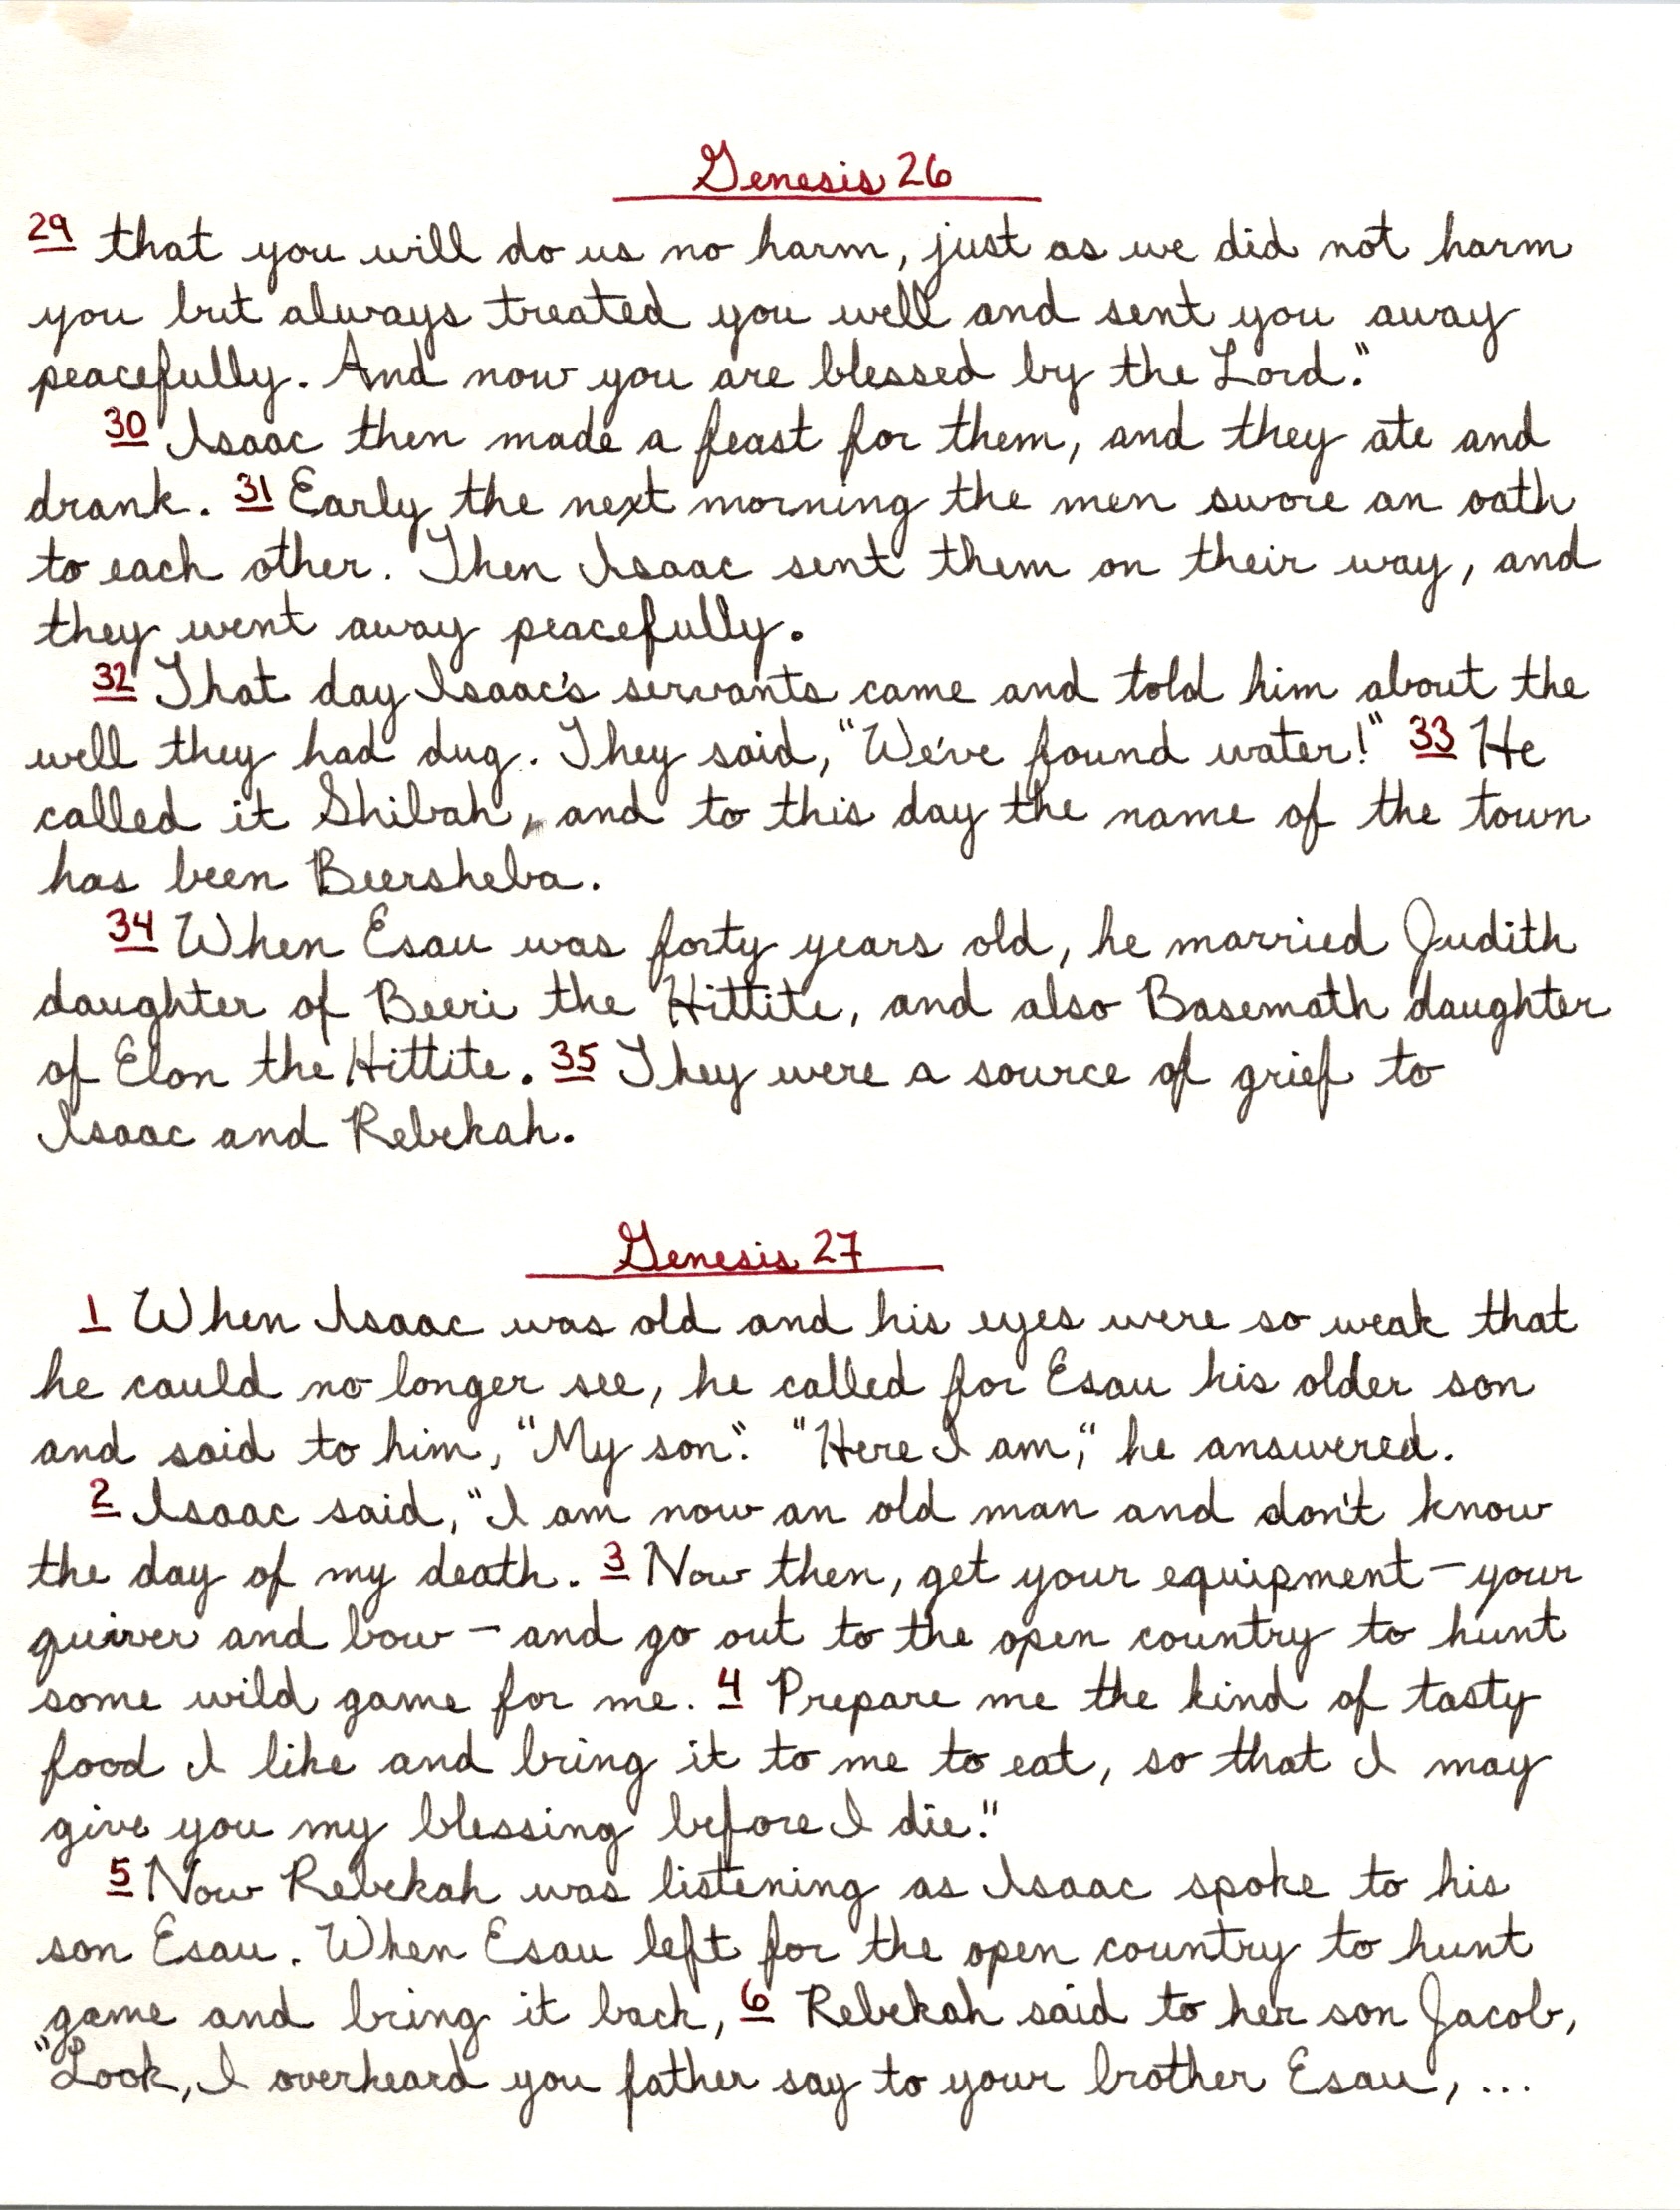 Genesis 26
29 that you will do us no harm, just as we did not harm
you but always treated you well and sent you away
peacefully. And now you are blessed by the Lord."
30 Isaac then made a feast for them, and they ate and
drank. 31 Early the next morning the men swore an oath
to each other. Then Isaac sent them on their way, and
they went away peacefully.
32 That day Isaac's servants came and told him about the
well they had dug. They said, "We've found water!" 33 He
called it Shibah, and to this day the name of the town
has been Beersheba.
34 When Esau was forty years old, he married Judith
daughter of Beeri the Hittite, and also Basemath daughter
of Elon the Hittite. 35 They were a source of grief to
Isaac and Rebekah.
Genesis 27
1 When Isaac was old and his eyes were so weak that
he could no longer see, he called for Esau his older son
and said to him, "My son". "Here I am," he answered.
2 Isaac said, "I am now an old man and don't know
the day of my death. 3 Now then, get your equipment - your
quiver and bow - and go out to the open country to hunt
some wild game for me. 4 Prepare me the kind of tasty
food I like and bring it to me to eat, so that I may
give you my blessing before I die."
5 Now Rebekah was listening as Isaac spoke to his
son Esau. When Esau left for the open country to hunt
game and bring it back, 6 Rebekah said to her son Jacob,
"Look, I overheard you father say to your brother Esau, ...